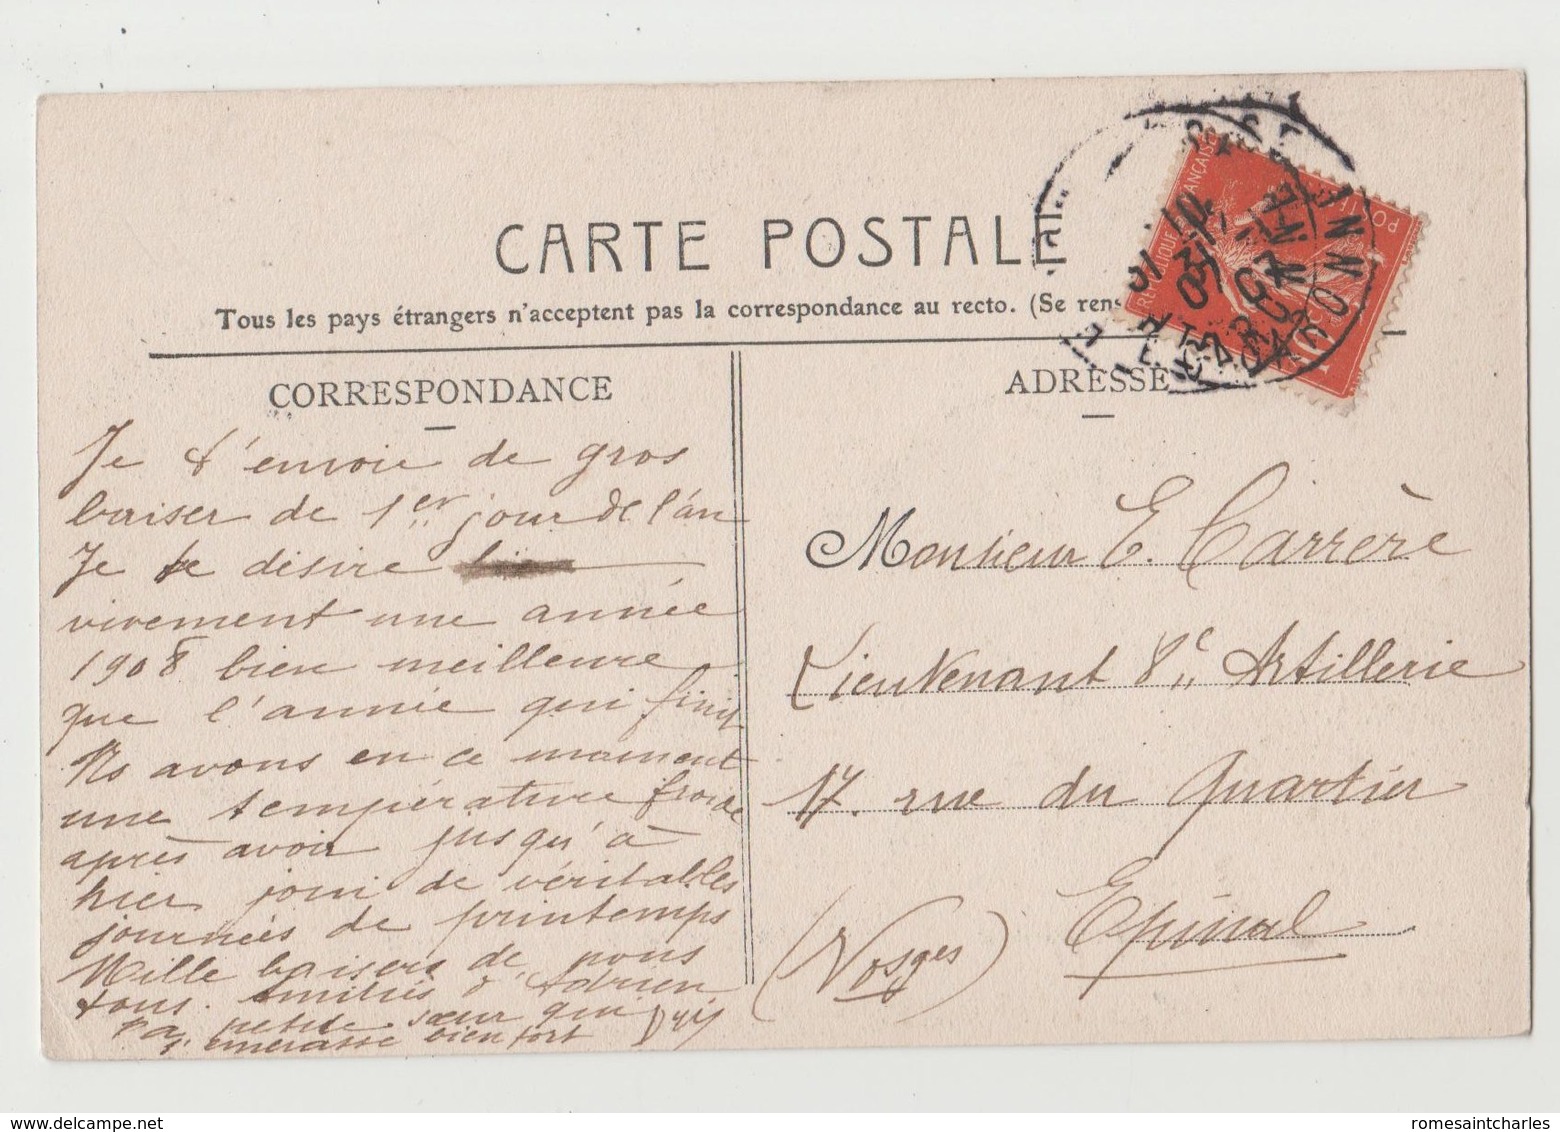 CARTE POSTALE
Tous les pays étrangers n'acceptent pas la correspondance au recto. (Se rens
CORRESPONDANCE
Je t'envoie de gros
baiser de 1er jour de l'an
Je te désire
vivement une année
1908 bien meilleure
que l'année qui finit
Ns avons en ce moment
une température froide
après avoir jusqu'à
hier joui de véritables
journées de printemps
Mille baisers de nous
tous. Amitiés d'Adrien
Ta petite sœur qui
t'embrasse bien fort
ADRESSE
Monsieur E. Carrère
Lieutenant 8e Artillerie
17. rue du Quartier
Epinal
(Vosges)
REPUBLIQUE FRANÇAISE
POSTES
10
GARONNE
romesaintcharles